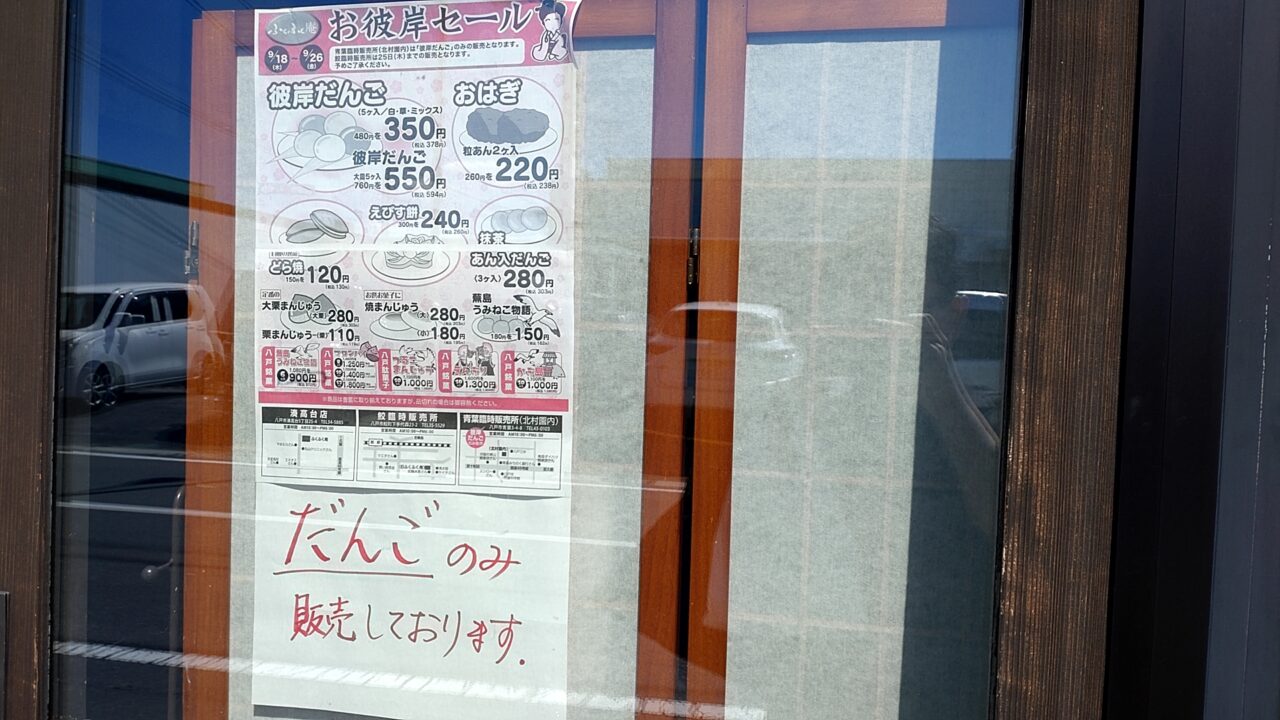 ふくふく庵
お彼岸セール
9/18(木)～9/26(金)
青葉臨時販売所(北村園内)は「彼岸だんご」のみの販売となります。
鮫臨時販売所は25日(木)までの販売となります。
予めご了承ください。
彼岸だんご
(5ヶ入/白・草・ミックス)
480円を350円
(税込 378円)
彼岸だんご
大皿5ヶ入
760円を550円
(税込 594円)
おはぎ
粒あん2ヶ入
260円を220円
(税込 238円)
えびす餅
300円を240円
(税込 260円)
どら焼
150円を120円
(税込 130円)
抹茶
あん入だんご
(3ヶ入)280円
(税込 303円)
定番の
大栗まんじゅう
(大栗)280円
栗まんじゅう(栗)110円
お供お菓子に
焼まんじゅう
(大)280円
(小)180円
蕪島
うみねこ物語
180円を150円
(税込 162円)
八戸銘菓
900円
八戸銘菓
1,250円
1,400円
1,800円
八戸駄菓子
1,000円
八戸銘菓
1,300円
八戸銘菓
かぶ島
1,000円
※商品は豊富に取り揃えておりますが、品切れの場合は御容赦ください。
湊高台店
鮫臨時販売所
青葉臨時販売所(北村園内)
だんごのみ
販売しております.